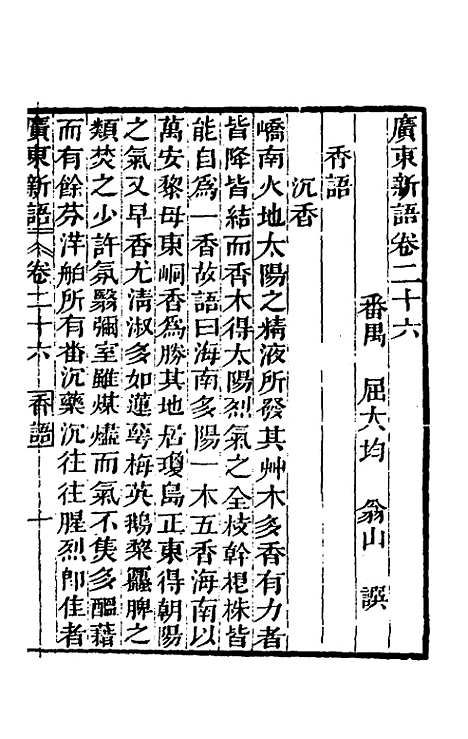 廣東新語卷二十六
番禺 屈大均 翁山 譔
香語
沉香
嶠南火地太陽之精液所發其艸木多香有力者
皆降皆結而香木得太陽烈氣之全枝幹根株皆
能自爲一香故語曰海南多陽一木五香海南以
萬安黎母東峒香爲勝其地居瓊島正東得朝陽
之氣又早香尤清淑多如蓮萼梅英鵝黎蠶脾之
類焚之少許氛翳彌室雖煤燼而氣不焦多醞藉
而有餘芬洋舶所有番沉藥沉往往腥烈卽佳者
廣東新語 卷二十六 香語 一